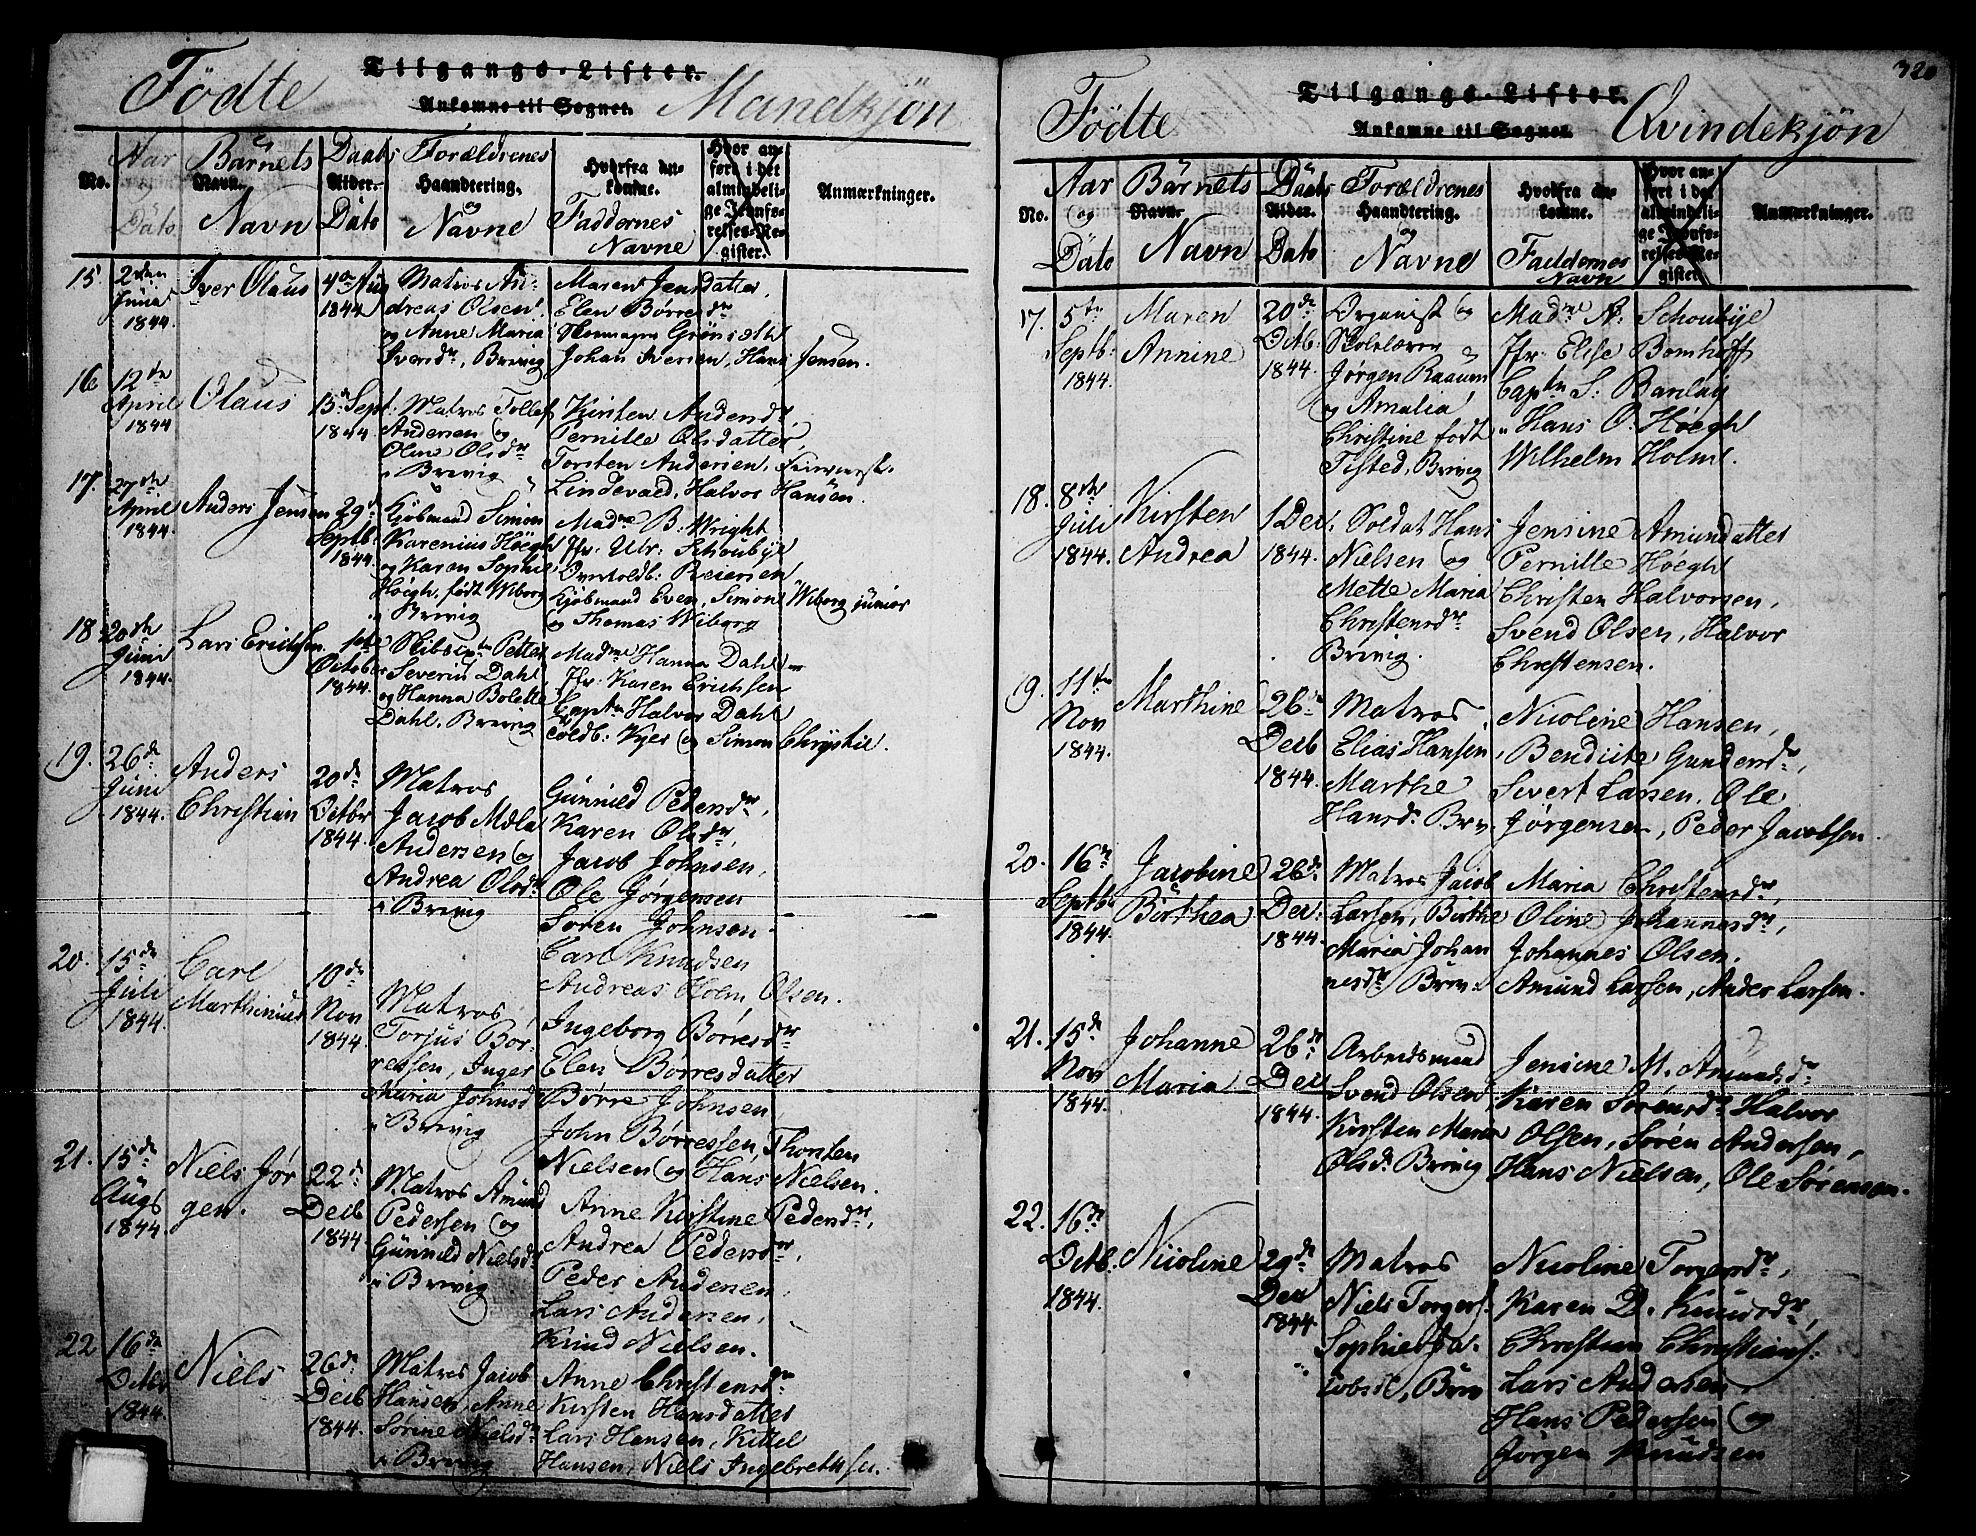 Tilgangs-Lister.
Födte Mandkjön
Ankomne til Sognet.
No.
Aar og Dato
Barnets Navn. Navn
Daabs Alder. Dato
Forældrenes Haandtering. og Navne
Hvorfra ankomne. Faddernes Navne
Hvor anført i det almindelige Jevnførelses-Register.
Anmærkninger.
15. 2den Juni 1844. Iver Olaus 4de Aug 1844
Matros An-
dreas Olsen
og Anne Maria
Iversdr, Brevig
Maren Jensdatter,
Elen Börresdr
Johan Iversen, Hans Jensen.
16 12te April 1844 Olaus 15de Sept 1844
Matros Tollef
Andersen og
Olsdr
i Brevig
Kirsten Andersdr,
Pernille Olsdatter,
Torsten Andersen,
Lindevald, Halvor Hansen.
17. 27de April 1844. Anders Jensen 29de Septb. 1844
Kjöbmand Simon
Karenius Höegh
og Karen Sophie
Höegh, födt Wiborg
Brevig
Madme B. Wright
Jfr. Ulr. Schoubye
Overtoldb: Reiersen
Kjöbmand Even, Simon Wiborg junior
og Thomas Wiborg
18. 20de Juni 1844. Lars Erichsen 1ste October 1844
Skibscptn Petter
Severin Dahl
og Hanna Bolette
Dahl, Brevig
Madme Hanna Dahl
Jfr. Karen Erichsen
Captn Halvor Dahl
Toldb: Kyer og Simon Chrystie.
19. 26de Juni 1844. Anders Christian 20de Octbr 1844
Matros
Jacob Mela
Andersen og
Andrea Olsdr
i Brevig
Gunnild Pedersdr,
Karen Olsdr,
Jacob Johnsen,
Ole Jörgensen
Sören Johnsen.
20. 15de Juli 1844. Carl Marthinius 10de Nov 1844
Matros
Torjus Bör-
resen, Inger
Maria Johnsdr
i Brevig
Carl Knudsen
Andreas Holm Olsen.
Ingeborg Börresdr
Elen Börresdatter
Börre Johnsen,
John Börresen, Thorsten
Nielsen og Hans Nielsen.
21. 15de Augs 1844. Niels Jör gen. 22de Decb 1844
Matros Amund
Pedersen og
Gunnild Nielsdr
i Brevig
Anne Kirstine Pedersdr,
Andrea Pedersdr,
Peder Andersen,
Lars Andersen,
Knud Nielsen.
22 16de Octbr 1844. Niels 26de Decb 1844
Matros Jacob
Hansen, Anne
Sörine Nielsdr
i Brevig
Anne Christensdr
Kirsten Hansdatter
Lars Hansen, Kittel
Hansen, Niels Ingebretsen.
320
Tilgangs-Lister.
Födte Qvindekjön
Ankomne til Sognet.
No.
Aar og Dato
Barnets Navn. Navn
Daabs Alder. Dato
Forældrenes Haandtering. og Navne
Hvorfra ankomne. Faddernes Navn
Hvor anført i det almindelige Jevnførelses-Register
Anmærkninger.
17. 5te Septb: 1844. Maren Annine 20de Octb. 1844.
Organist og
Skolelærer
Jörgen Raaum
og Amalia
Christine födt
Tisted, Brevig
Madme A. Schoubye
Jfr. Elise Bomhoff
Captn S: Barclay
" Hans O. Höegh
Wilhelm Holm.
18. 8de Juli 1844. Kirsten Andrea 1 Dec. 1844.
Soldat Hans
Nielsen og
Mette Maria
Christensdr
Brevig.
Jensine Amundatter
Pernille Höegh
Christen Halvorsen,
Svend Olsen, Halvor
Christensen.
19. 11te Nov 1844. Marthine 26de Decb 1844.
Matros
Elias Hansen,
Marthe
Hansdr Brev.
Nicoline Hansen,
Bendicte Gundersdr,
Sivert Larsen, Ole
Jörgensen, Peder Jacobsen.
20. 16de Septb 1844. Jacobine Börthea 26de Dec: 1844.
Matros Jacob
Larsen, Birthe
Maria Johan
nesdr Brev.
Maria Christensdr,
Oline Johannesdr,
Johannes Olsen,
Amund Larsen, Ander Larsen.
21. 15de Nov 1844. Johanne Maria 26de Dec 1844.
Arbeidsmand
Svend Olsen,
Kirsten Maria
Olsdr Brevig
Jensine M. Amundsdr
Karen Sörensdr Halvor
Olsen, Sören Andersen,
Hans Nielsen, Ole Sörensen.
22. 16de Octb. 1844. Nicoline 29de Dec 1844
Matros
Niels Torgers.
Sophie Ja-
cobsd, Brev
Nicoline Torgersdr,
Karen D. Knudsdr,
Christian Christians:
Lars Andersen
Hans Pedersen og
Jörgen Knudsen